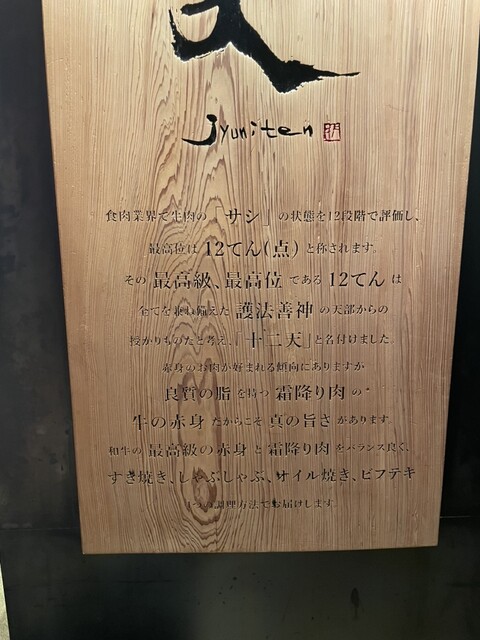 天
jyuniten
食肉業界で牛肉の「サシ」の状態を12段階で評価し、
最高位は12てん(点)と称されます。
その最高級、最高位である12てんは
全てを兼ね備えた護法善神の天部からの
授かりものだと考え、「十二天」と名付けました。
赤身のお肉が好まれる傾向にありますが
良質の脂を持つ霜降り肉の
牛の赤身だからこそ真の旨さがあります。
和牛の最高級の赤身と霜降り肉をバランス良く、
すき焼き、しゃぶしゃぶ、オイル焼き、ビフテキ
4つの調理方法でお届けします。